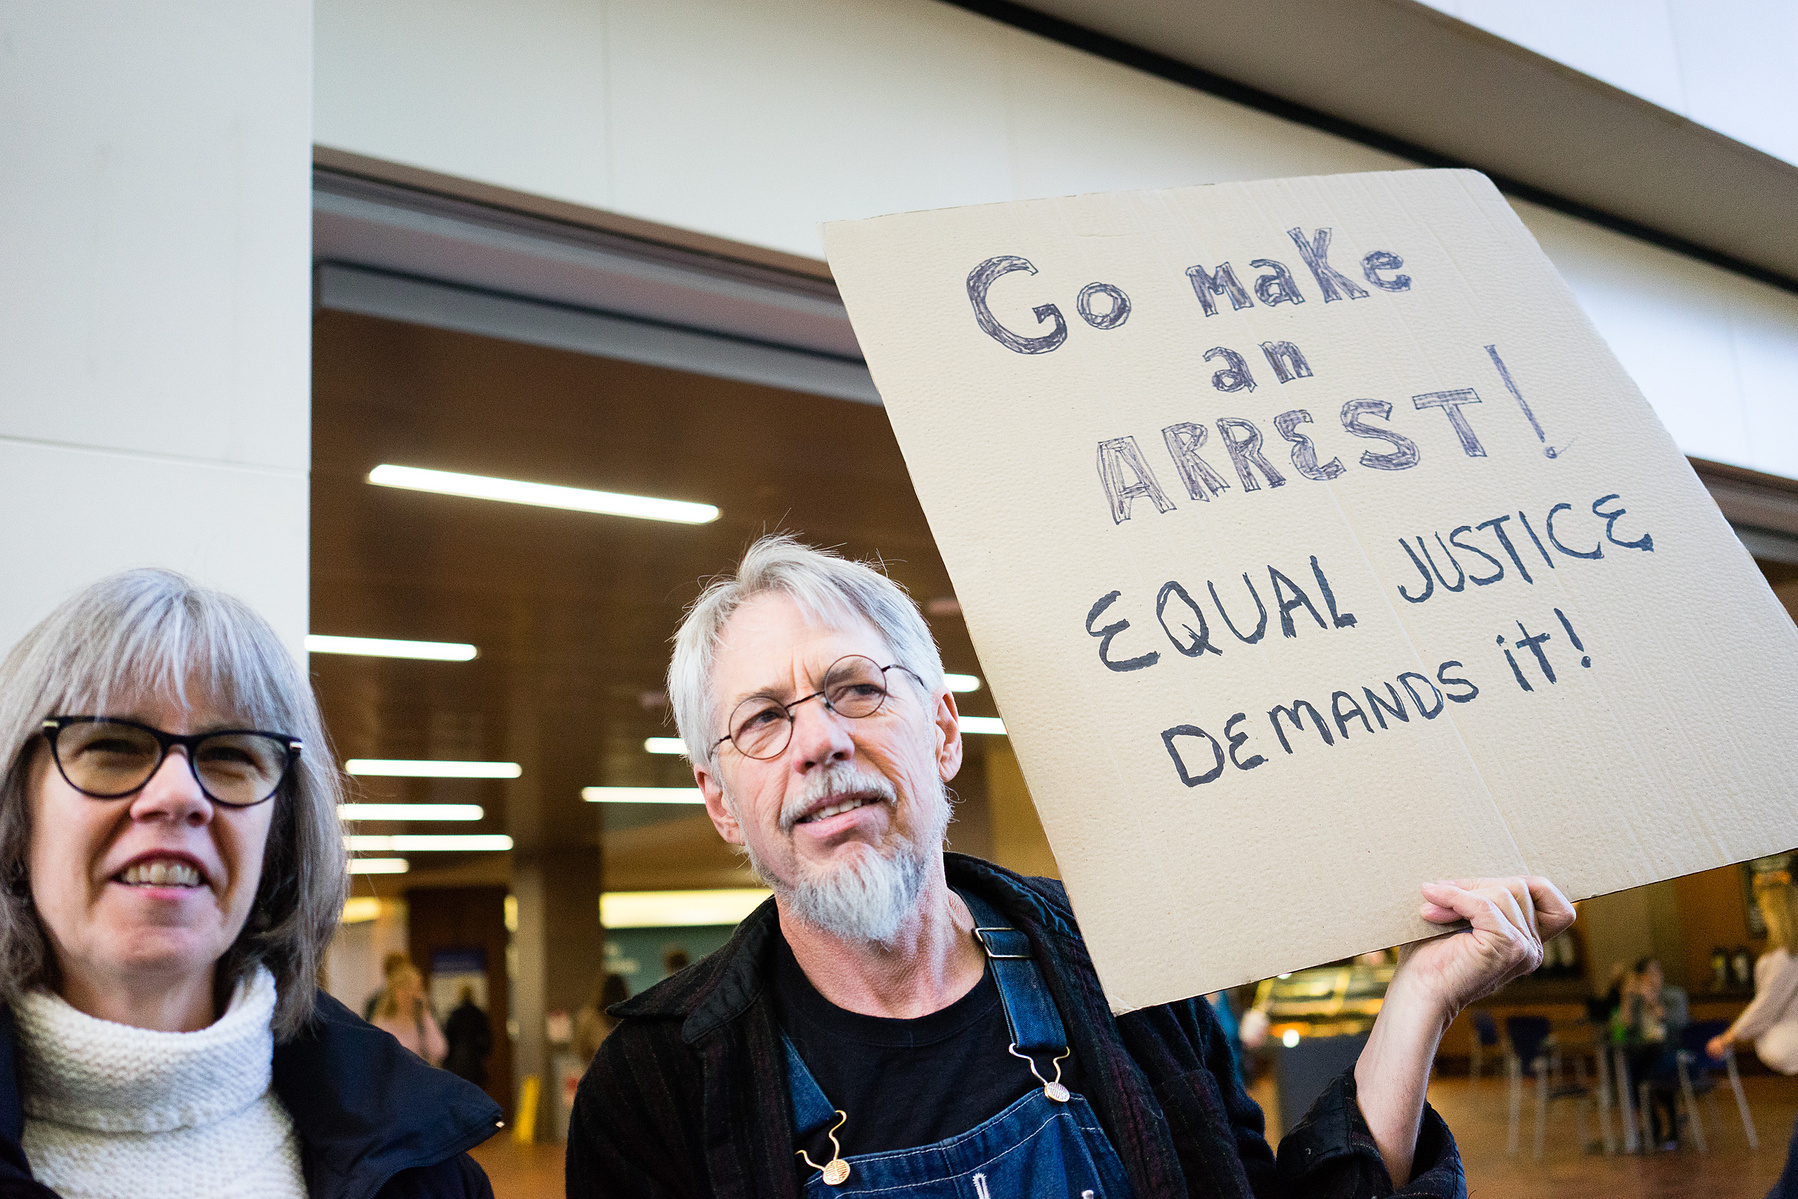 Go make
an
ARREST!
EQUAL JUSTICE
DEMANDS it!